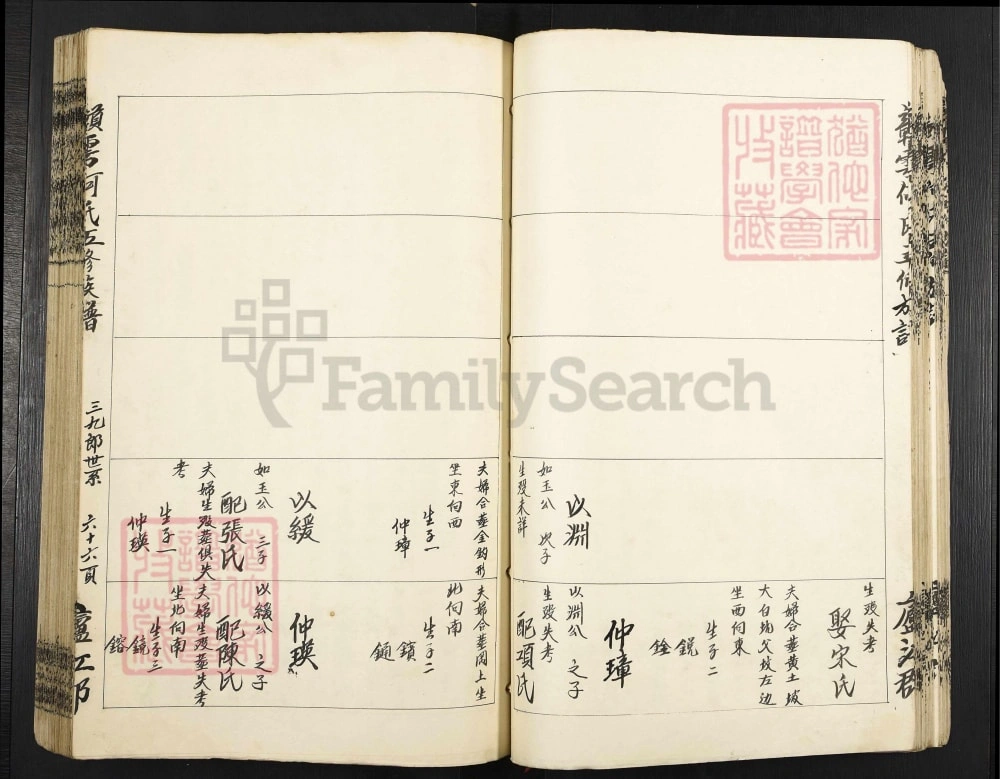 生歿失考
娶宋氏
夫婦合葬黄土坡
大白坑父坟左边
坐西向東
生子二
銳
銓
仲璋
以淵公 之子
生歿失考
配項氏
以淵
如玉公 次子
生歿未詳
夫婦合葬金鈎形
坐東向西
生子一
仲璋
以緩
如玉公 三子
配張氏
夫婦生歿葬俱失
考
生子一
仲瑛
夫婦合葬岡上坐
北向南
生子二
鎖
仲瑛
以緩公 之子
配陳氏
夫婦生歿葬失考
坐北向南
生子三
鏡
鎔
何氏五修族譜
三九郎世系
六十六頁
廬江郡
FamilySearch